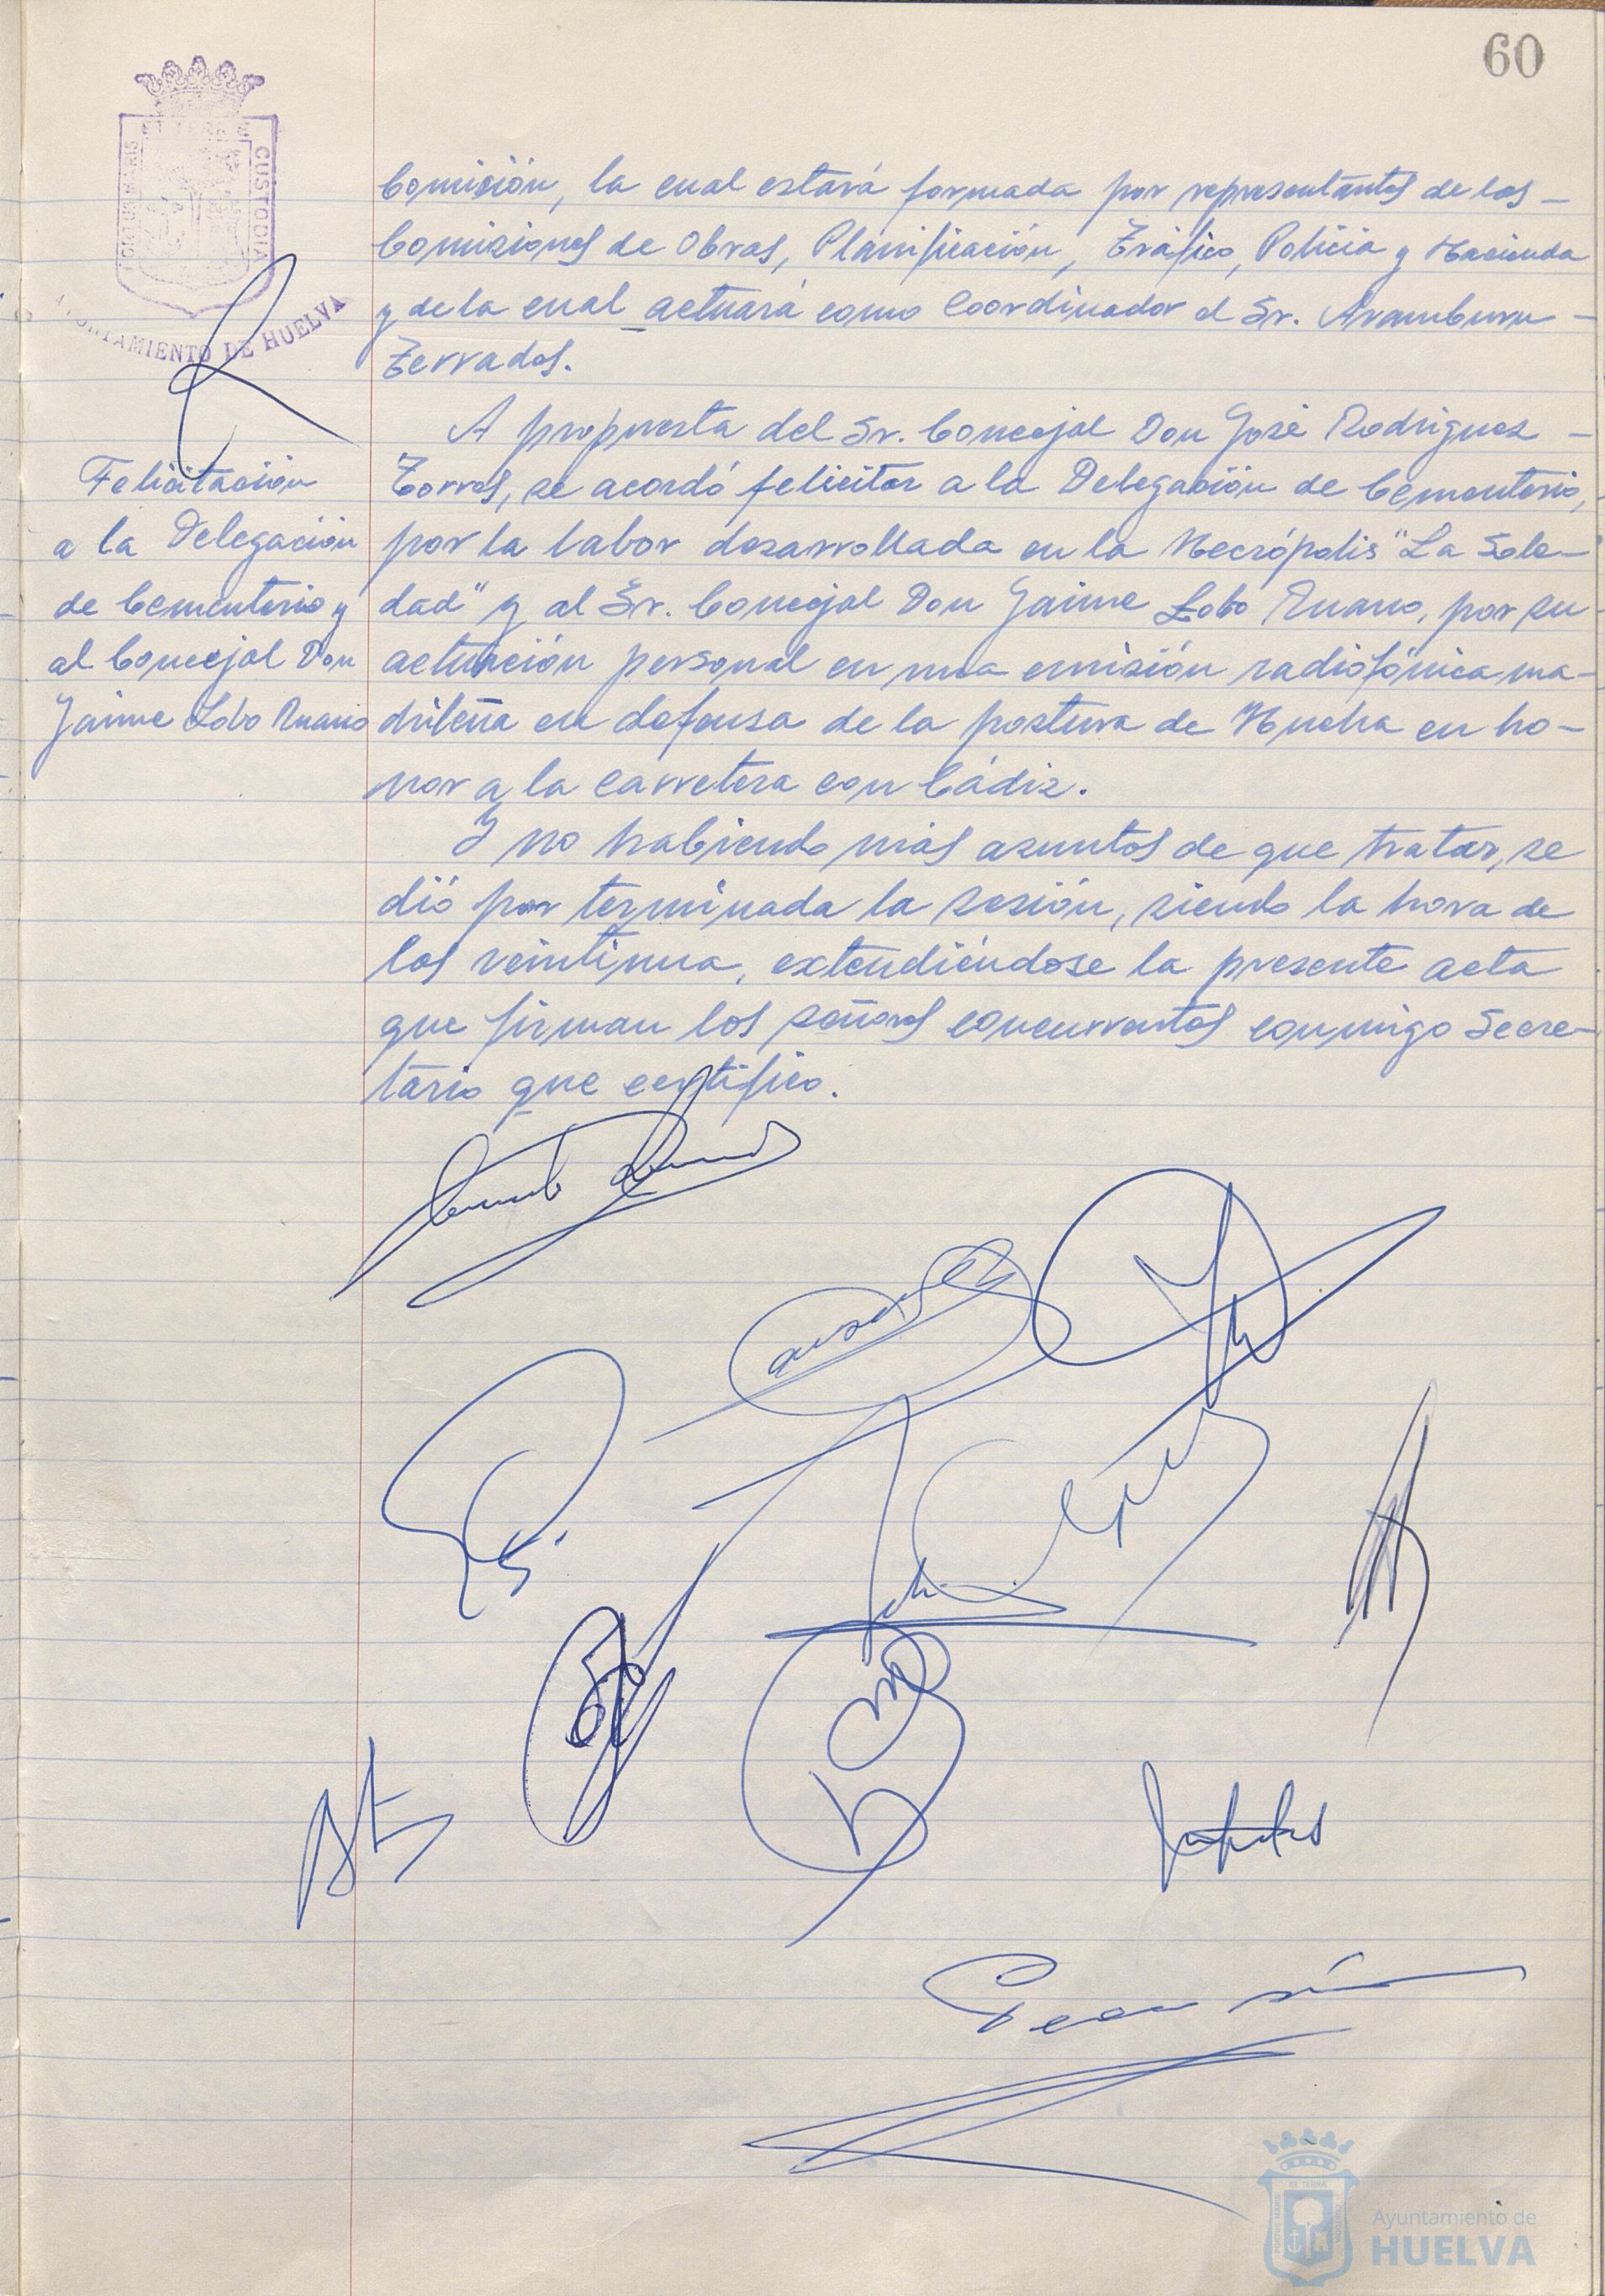 60
PORTUS MARIS ET TERRÆ CUSTODIA
AYUNTAMIENTO DE HUELVA
Comisión, la cual estará formada por representantes de las
Comisiones de Obras, Planificación, Tráfico, Policia y Hacienda
y de la cual actuará como Coordinador el Sr. Aramburu
Terrados.
A propuesta del Sr. Concejal Don José Rodriguez
Torres, se acordó felicitar a la Delegación de Cementerio,
por la labor desarrollada en la Necrópolis "La Sole-
dad" y al Sr. Concejal Don Jaime Lobo Ruano, por su
actuación personal en una emisión radiofónica ma-
drileña en defensa de la postura de Huelva en ho-
nor a la carretera con Cádiz.
Felicitación
a la Delegación
de Cementerio y
al Concejal Don
Jaime Lobo Ruano
Y no habiendo más asuntos de que tratar, se
dió por terminada la sesión, siendo la hora de
las veintiuna, extendiéndose la presente acta
que firman los señores concurrentes conmigo Secre-
tario que certifico.
Ayuntamiento de
HUELVA